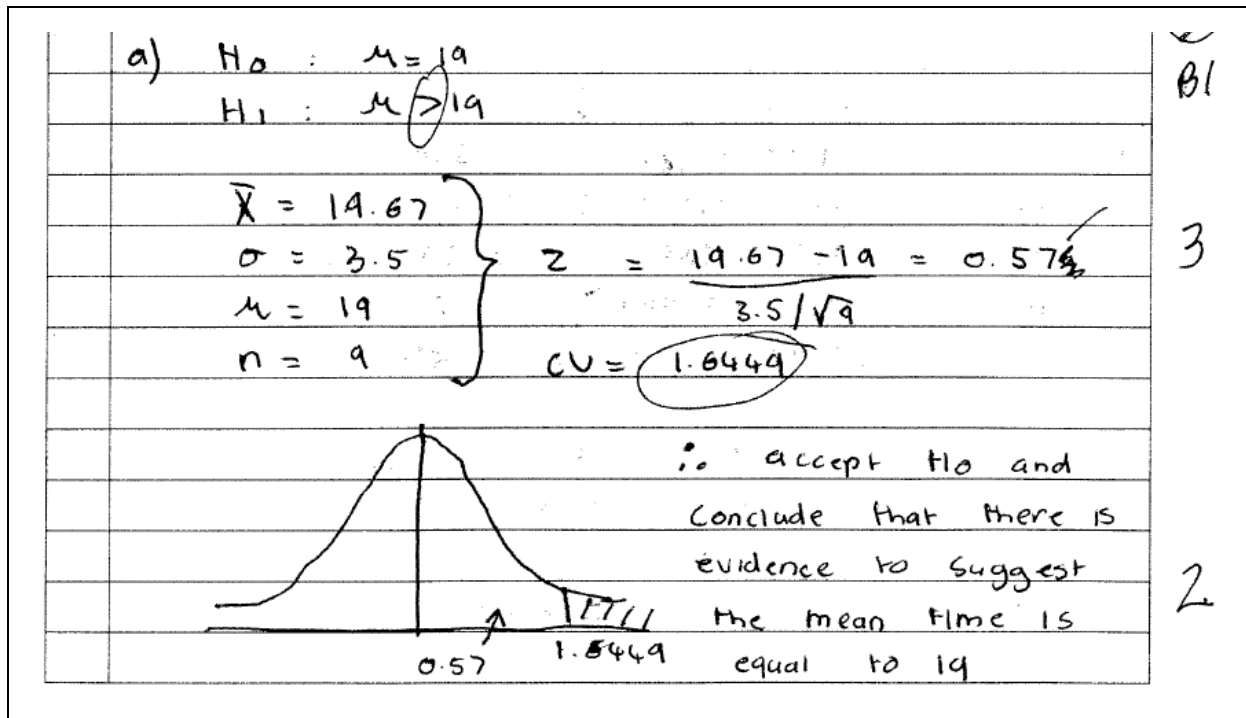 a) H0 : μ = 19
B1
H1 : μ > 19
X̄ = 19.67
σ = 3.5
μ = 19
n = 9
Z = 19.67 - 19 = 0.57
3.5/√9
3
CV = 1.6449
∴ accept H0 and
conclude that there is
evidence to suggest
the mean time is
equal to 19
2
0.57
1.6449